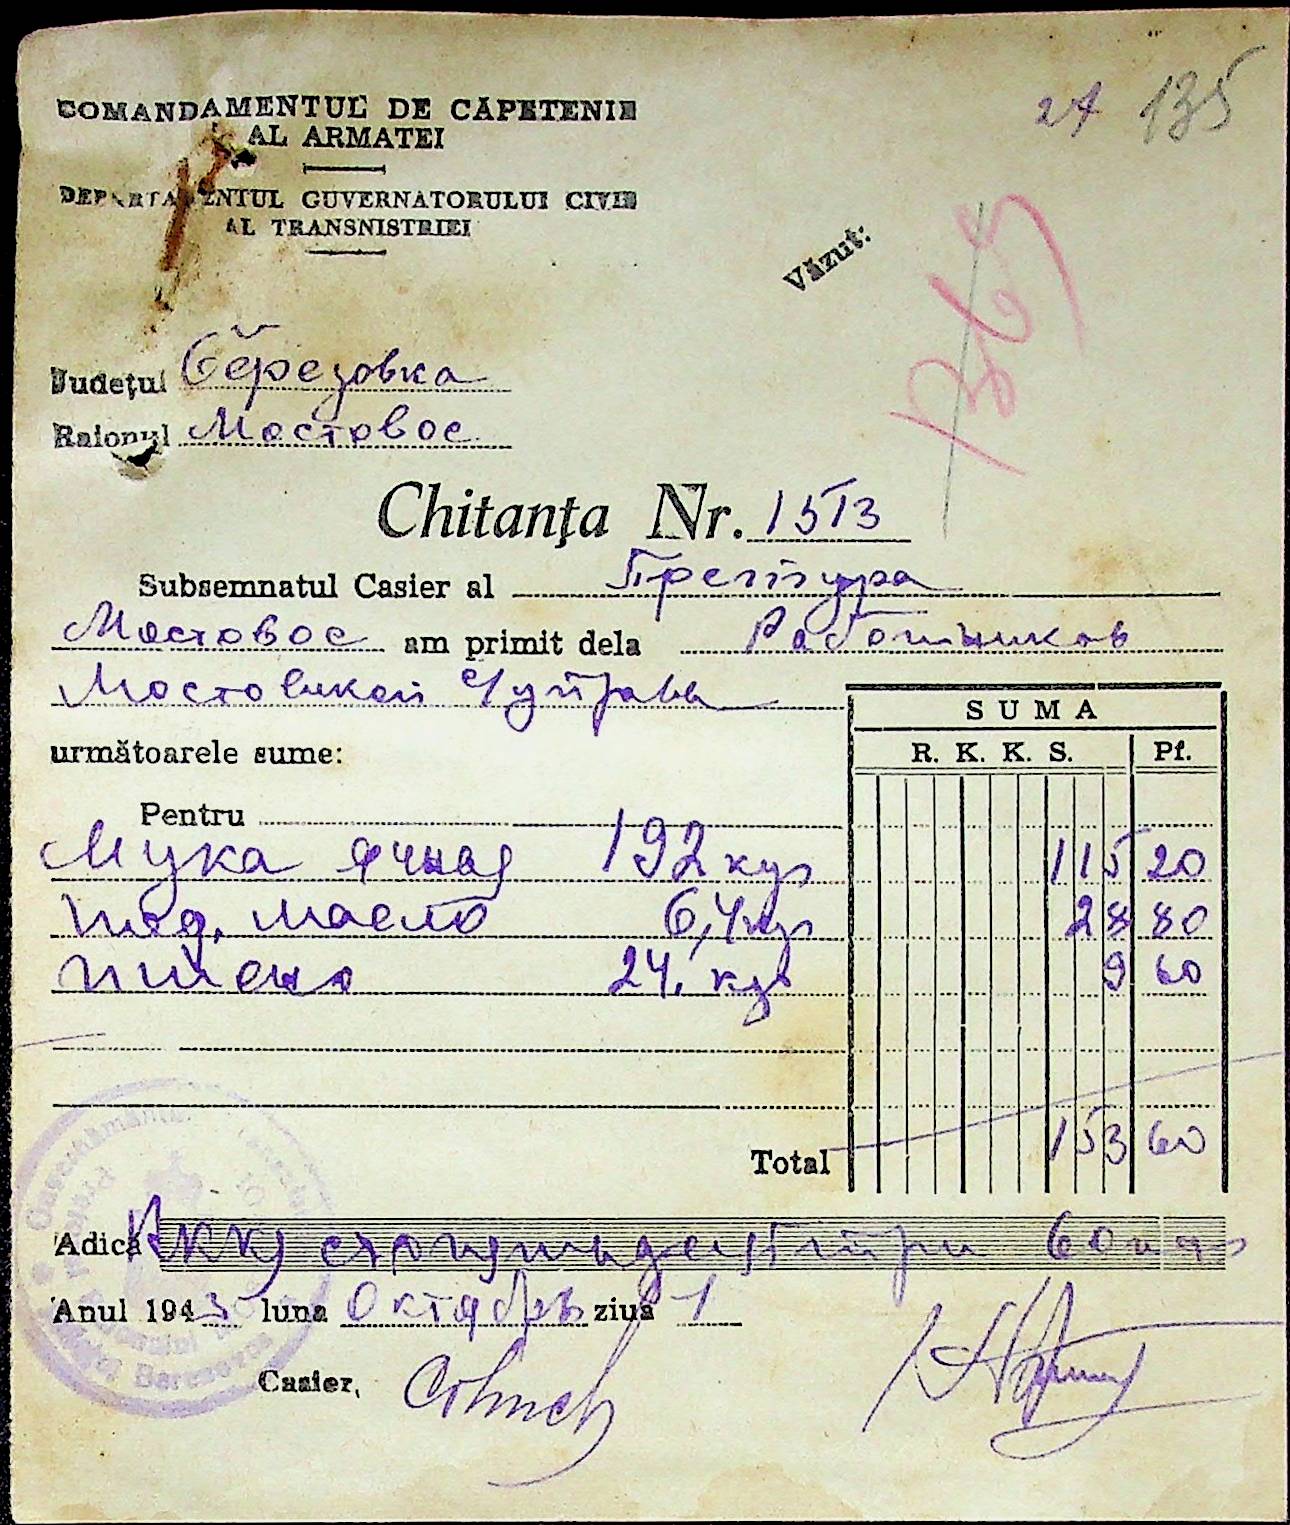 24 135
COMANDAMENTUL DE CĂPETENIE
AL ARMATEI
DEPARTAMENTUL GUVERNATORULUI CIVIL
AL TRANSNISTRIEI
Văzut:
Județul Березовка
Raionul Мостовое
Chitanța Nr. 1513
Subsemnatul Casier al Претура
Мостовое am primit dela Работников
Мостовской с/управы
următoarele sume:
SUMA
R. K. K. S. Pf.
Pentru
Мука ячная 192 кгр 115 20
под. масло 6,4 кгр 28 80
пшено 24, кгр 9 60
Total 153 60
Adică РККС сто пятьдесят три 60 пф
Anul 1943 luna Октябрь ziua 1
Casier,